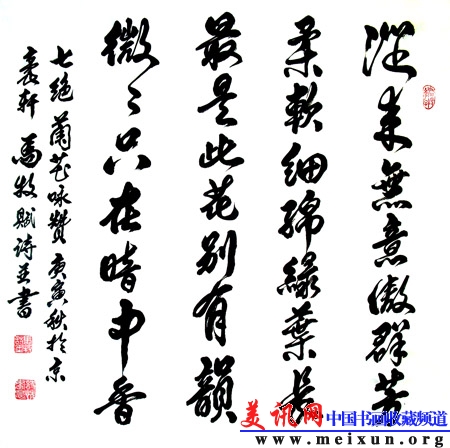 從来無意傲群芳
柔軟細綿緑葉長
最是此花别有韻
微〻只在暗中香
七絶 蘭花咏贊 庚寅秋於京
轩 馬牧賦詩並書
美讯网 中国书画收藏频道
www.meixun.org